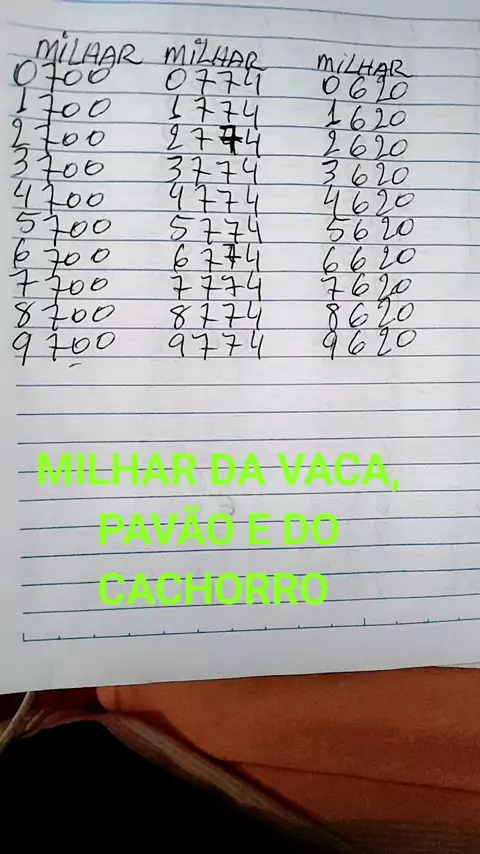 MILHAR MILHAR MILHAR
0700 0774 0620
1700 1774 1620
2700 2774 2620
3700 3774 3620
4700 4774 4620
5700 5774 5620
6700 6774 6620
7700 7774 7620
8700 8774 8620
9700 9774 9620
MILHAR DA VACA,
PAVÃO E DO
CACHORRO